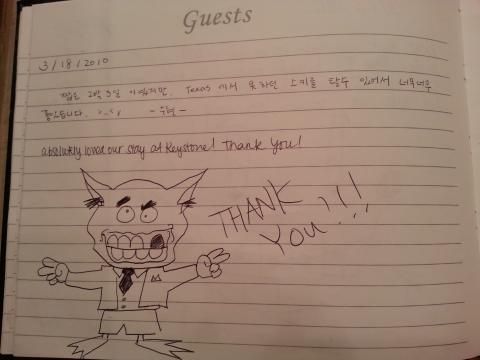 Guests
3/18/2010
짧은 2박 3일 이였지만, Texas 에서 못하던 스키를 탈수 있어서 너무너무
좋았습니다. ^-^
absolutely loved our stay at Keystone! Thank You!
THANK
YOU!!!